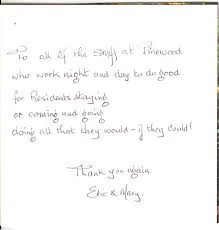 To all of the Staff at Pinewood
who work night and day to do good
for Residents staying
or coming and going
doing all that they would - if they could!
Thank you again
Eric & Mary.